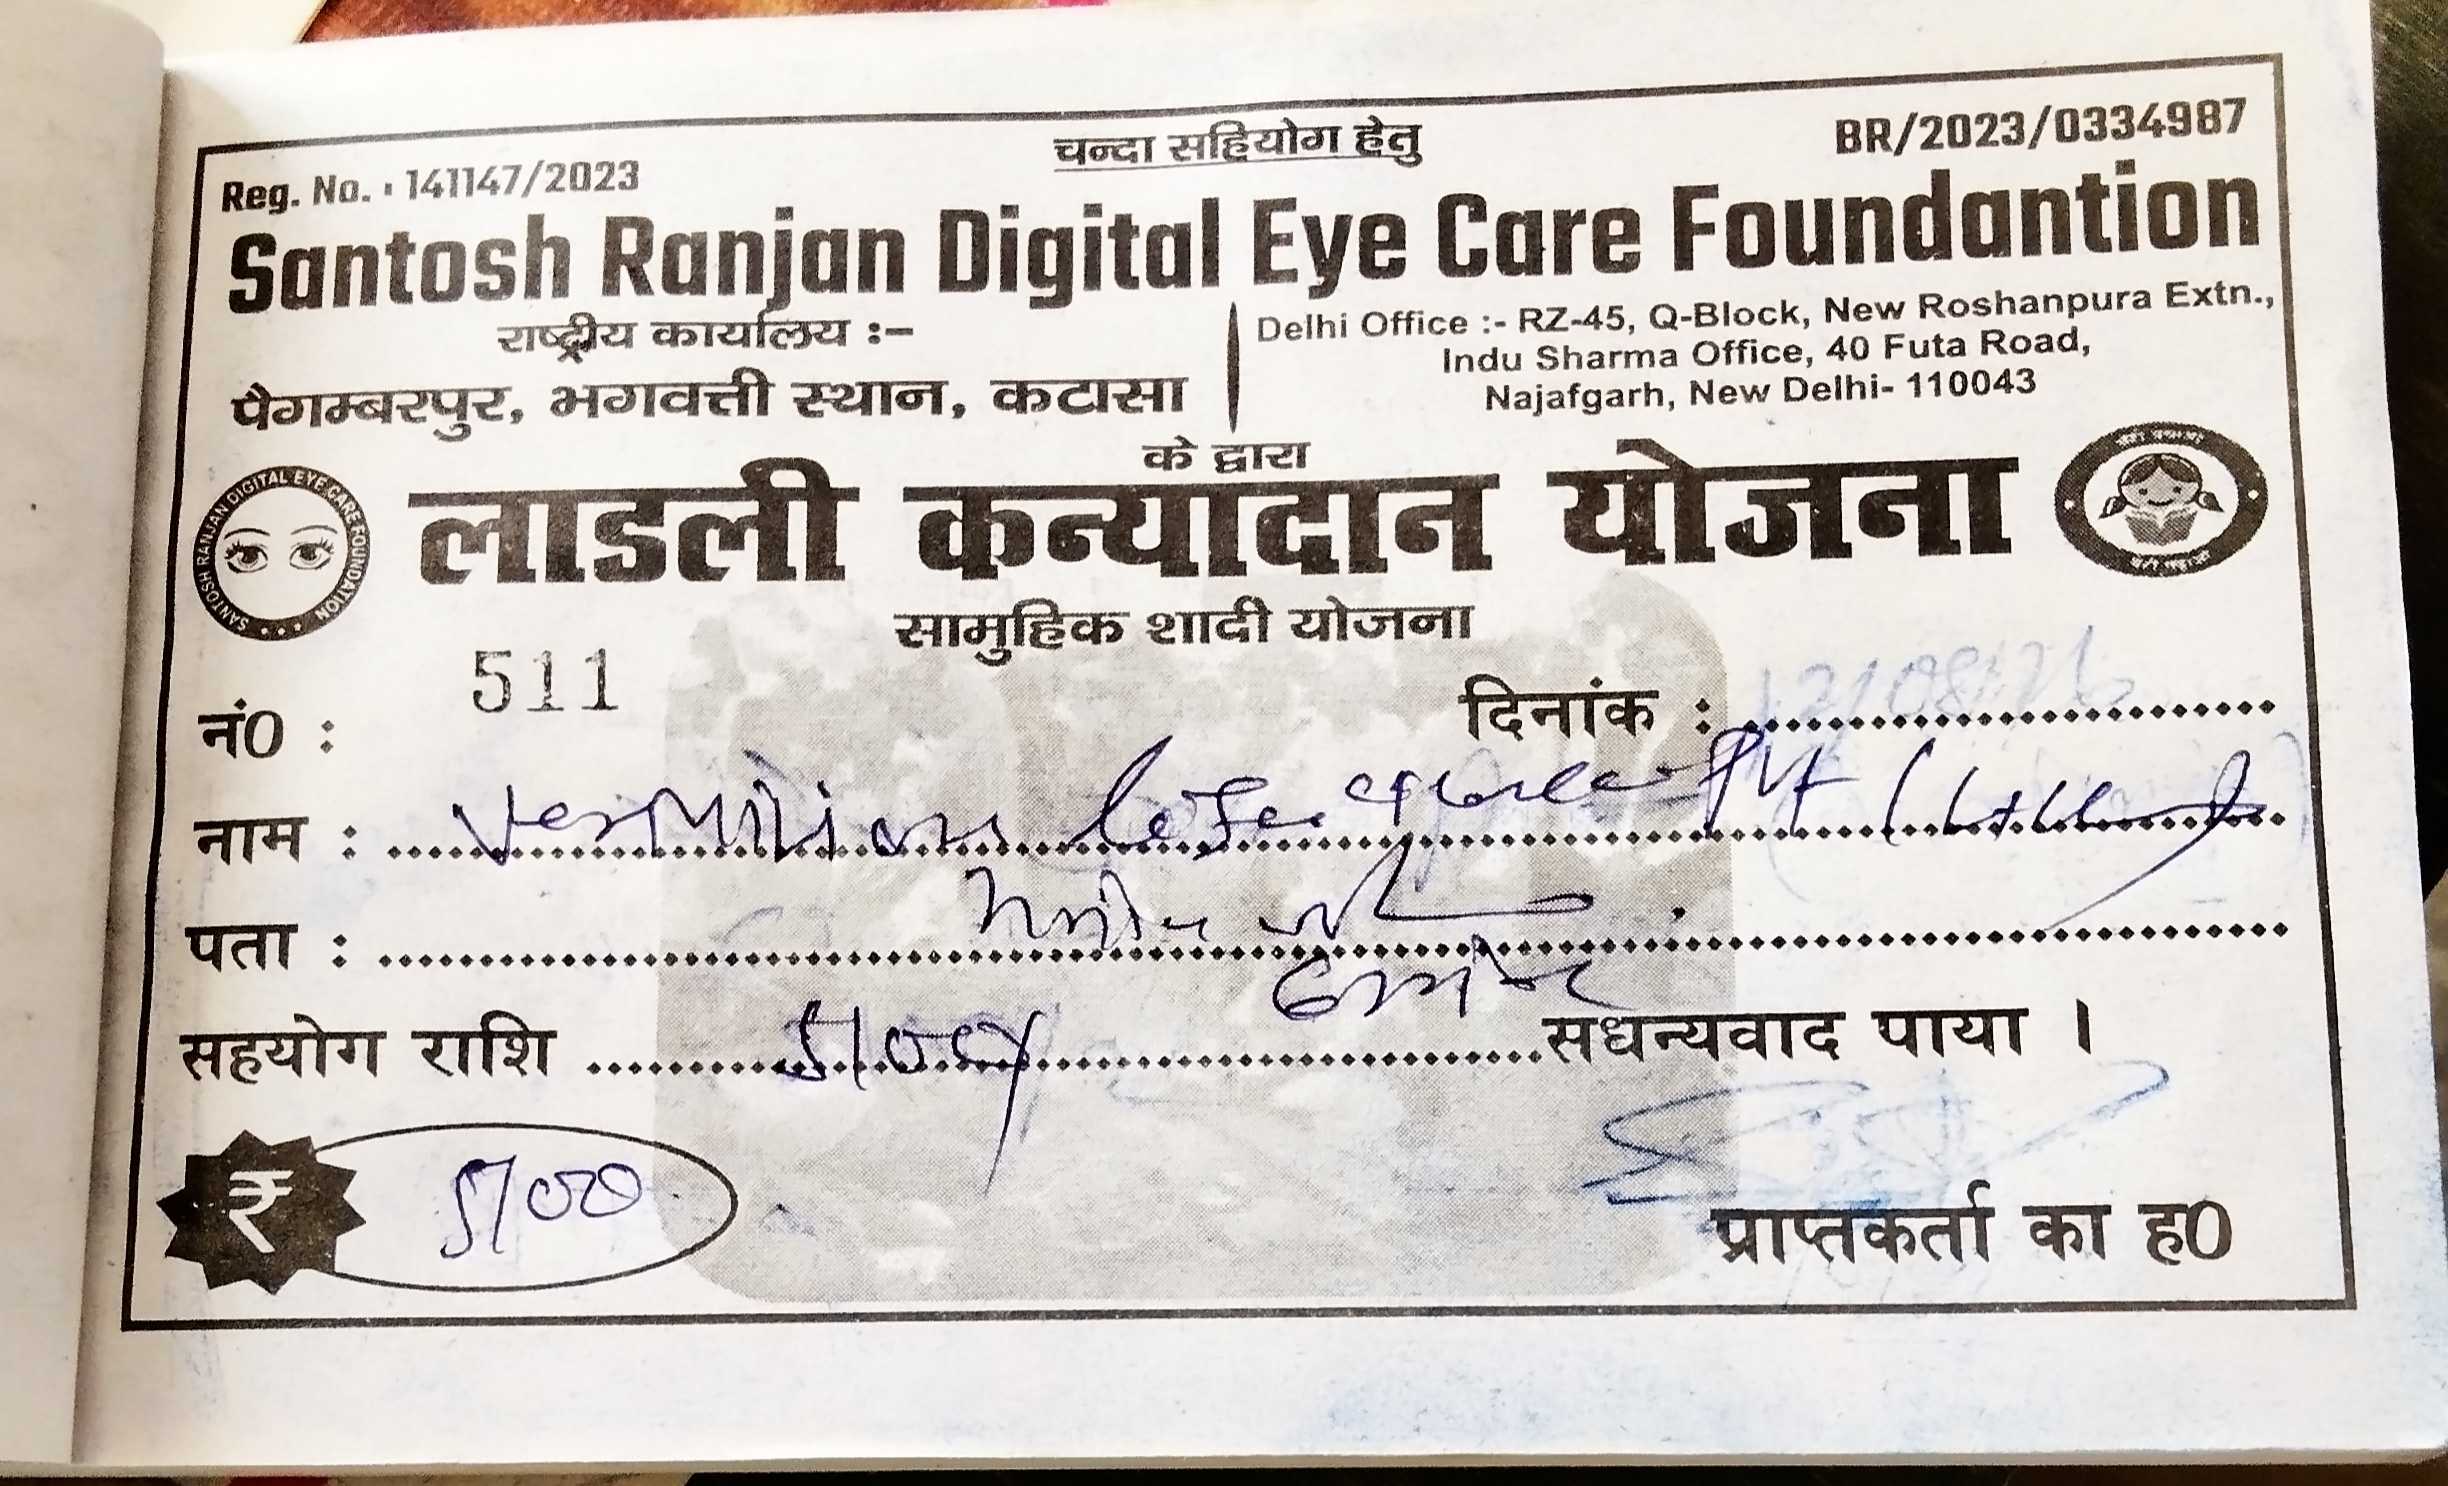 चन्दा सहियोग हेतु
Reg. No. : 141147/2023
BR/2023/0334987
Santosh Ranjan Digital Eye Care Foundantion
राष्ट्रीय कार्यालय :–
पैगम्बरपुर, भगवत्ती स्थान, कटासा
Delhi Office :- RZ-45, Q-Block, New Roshanpura Extn.,
Indu Sharma Office, 40 Futa Road,
Najafgarh, New Delhi- 110043
के द्वारा
SANTOSH RANJAN DIGITAL EYE CARE FOUNDATION
लाडली कन्यादान योजना
सामुहिक शादी योजना
नं0 : 511
दिनांक :
नाम :
पता :
सहयोग राशि 5100/ सधन्यवाद पाया ।
₹ 5100
प्राप्तकर्ता का ह0